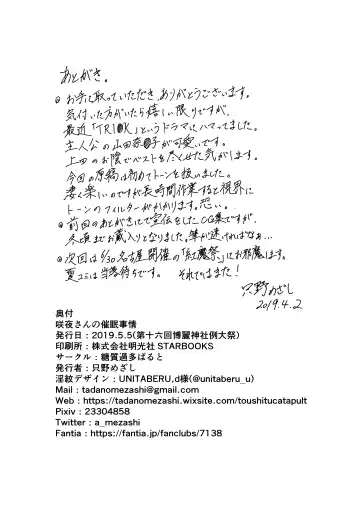 あとがき。
◎お手に取っていただき、ありがとうございます。
気付いた方がいたら嬉しい限りですが、
最近「TRI●K」というドラマにハマってました。
主人公の山田奈●子が可愛いです。
上田のお陰でベストをつくせた気がします。
今回の原稿は初めてトーンを扱いました。
凄く楽しいのですが長時間作業すると視界に
トーンのフィルターがかかります。恐い。
◎前回のあとがきにて宣伝をしたCG集ですが、
冬頃までお蔵入りとなりました。筆が速ければなぁ…
◎次回は6/30名古屋開催の「紅魔祭」にお邪魔します。
夏コミは当落待ちです。それではまた!
只野めざし
2019.4.2
奥付
咲夜さんの催眠事情
発行日:2019.5.5(第十六回博麗神社例大祭)
印刷所:株式会社明光社 STARBOOKS
サークル:糖質過多ぱると
発行者:只野めざし
淫紋デザイン:UNITABERU,d様(@unitaberu_u)
Mail:tadanomezashi@gmail.com
Web:https://tadanomezashi.wixsite.com/toushitucatapult
Pixiv:23304858
Twitter:a_mezashi
Fantia:https://fantia.jp/fanclubs/7138